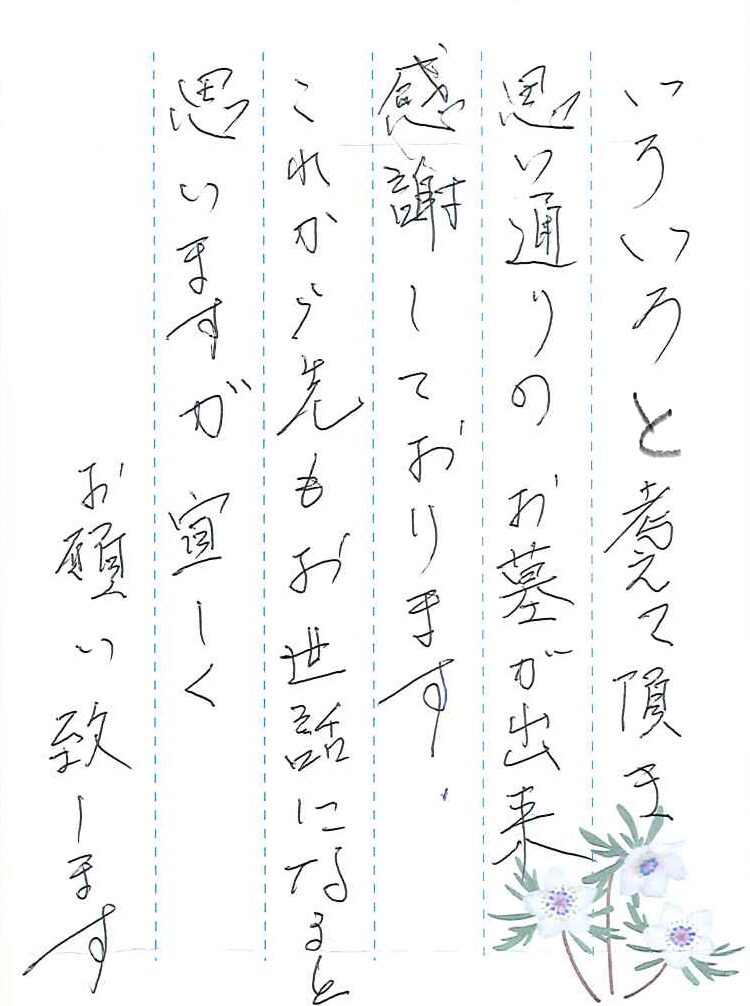 いろいろと考えて頂き
思い通りのお墓が出来
感謝しております.
これから先もお世話になると
思いますが宜しく
お願い致します